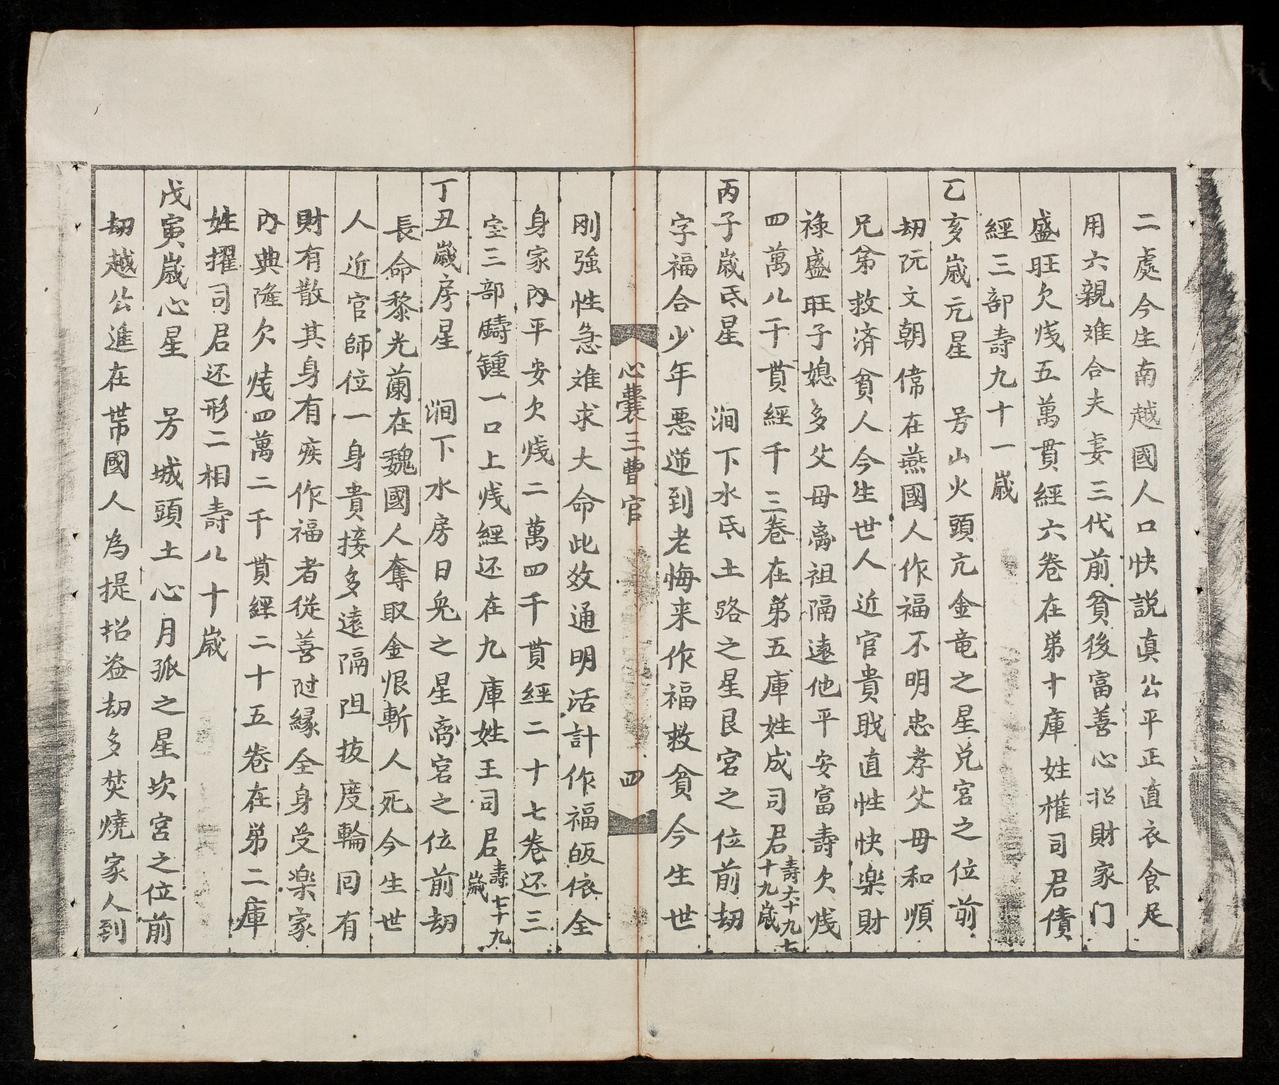 二處今生南越國人口快説真公平正直衣食足
用六親难合夫妻三代前貧後富善心招財家门
盛旺欠残五萬貫經六卷在苐十庫姓權司君債
經三部壽九十一嵗
乙亥嵗亢星 芳山火頭亢金竜之星兑宮之位前
刼阮文朝儅在燕國人作福不明忠孝父母和順
兄弟救済貧人今生世人近官貴戝直性快楽財
祿盛旺子媳多父母离祖隔遠他平安富壽欠残
四萬八千貫經千三卷在苐五庫姓成司君壽六十九七十九嵗
丙子嵗氐星 澗下水氐土路之星艮宮之位前刼
字福合少年悪逆到老悔来作福救貧今生世
心囊三曹官 四
刚強性急难求大命此效通明活計作福皈依全
身家內平安欠残二萬四千貫經二十七卷还三
宝三部鑄鍾一口上残經还在九庫姓王司君壽七十九嵗
丁丑嵗房星 澗下水房日兔之星离宮之位前刼
長命黎光蘭在魏國人奪取金恨斬人死今生世
人近官師位一身貴接多遠隔阻抜度輪囘有
財有散其身有疾作福者從善过縁全身受楽家
內典隆欠残四萬二千貫經二十五卷在苐二庫
姓擢司君还形二相壽八十嵗
戊寅嵗心星 芳城頭土心月狐之星坎宮之位前
刼越公進在帶國人為提招盗刼多焚燒家人到